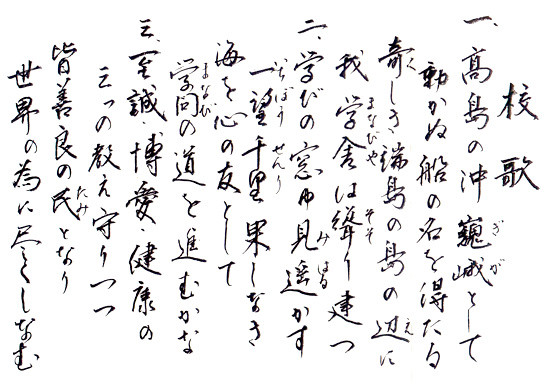 校歌
一、高島の沖巍峨として
動かぬ船の名を得たる
奇しき端島の島の辺に
我学舎は聳り建つ
二、学びの窓ゆ見遥かす
一望千里果しなき
海を心の友として
学問の道を進むかな
三、至誠博愛、健康の
三つの教え守りつつ
皆善良の民となり
世界の為に尽くしなむ